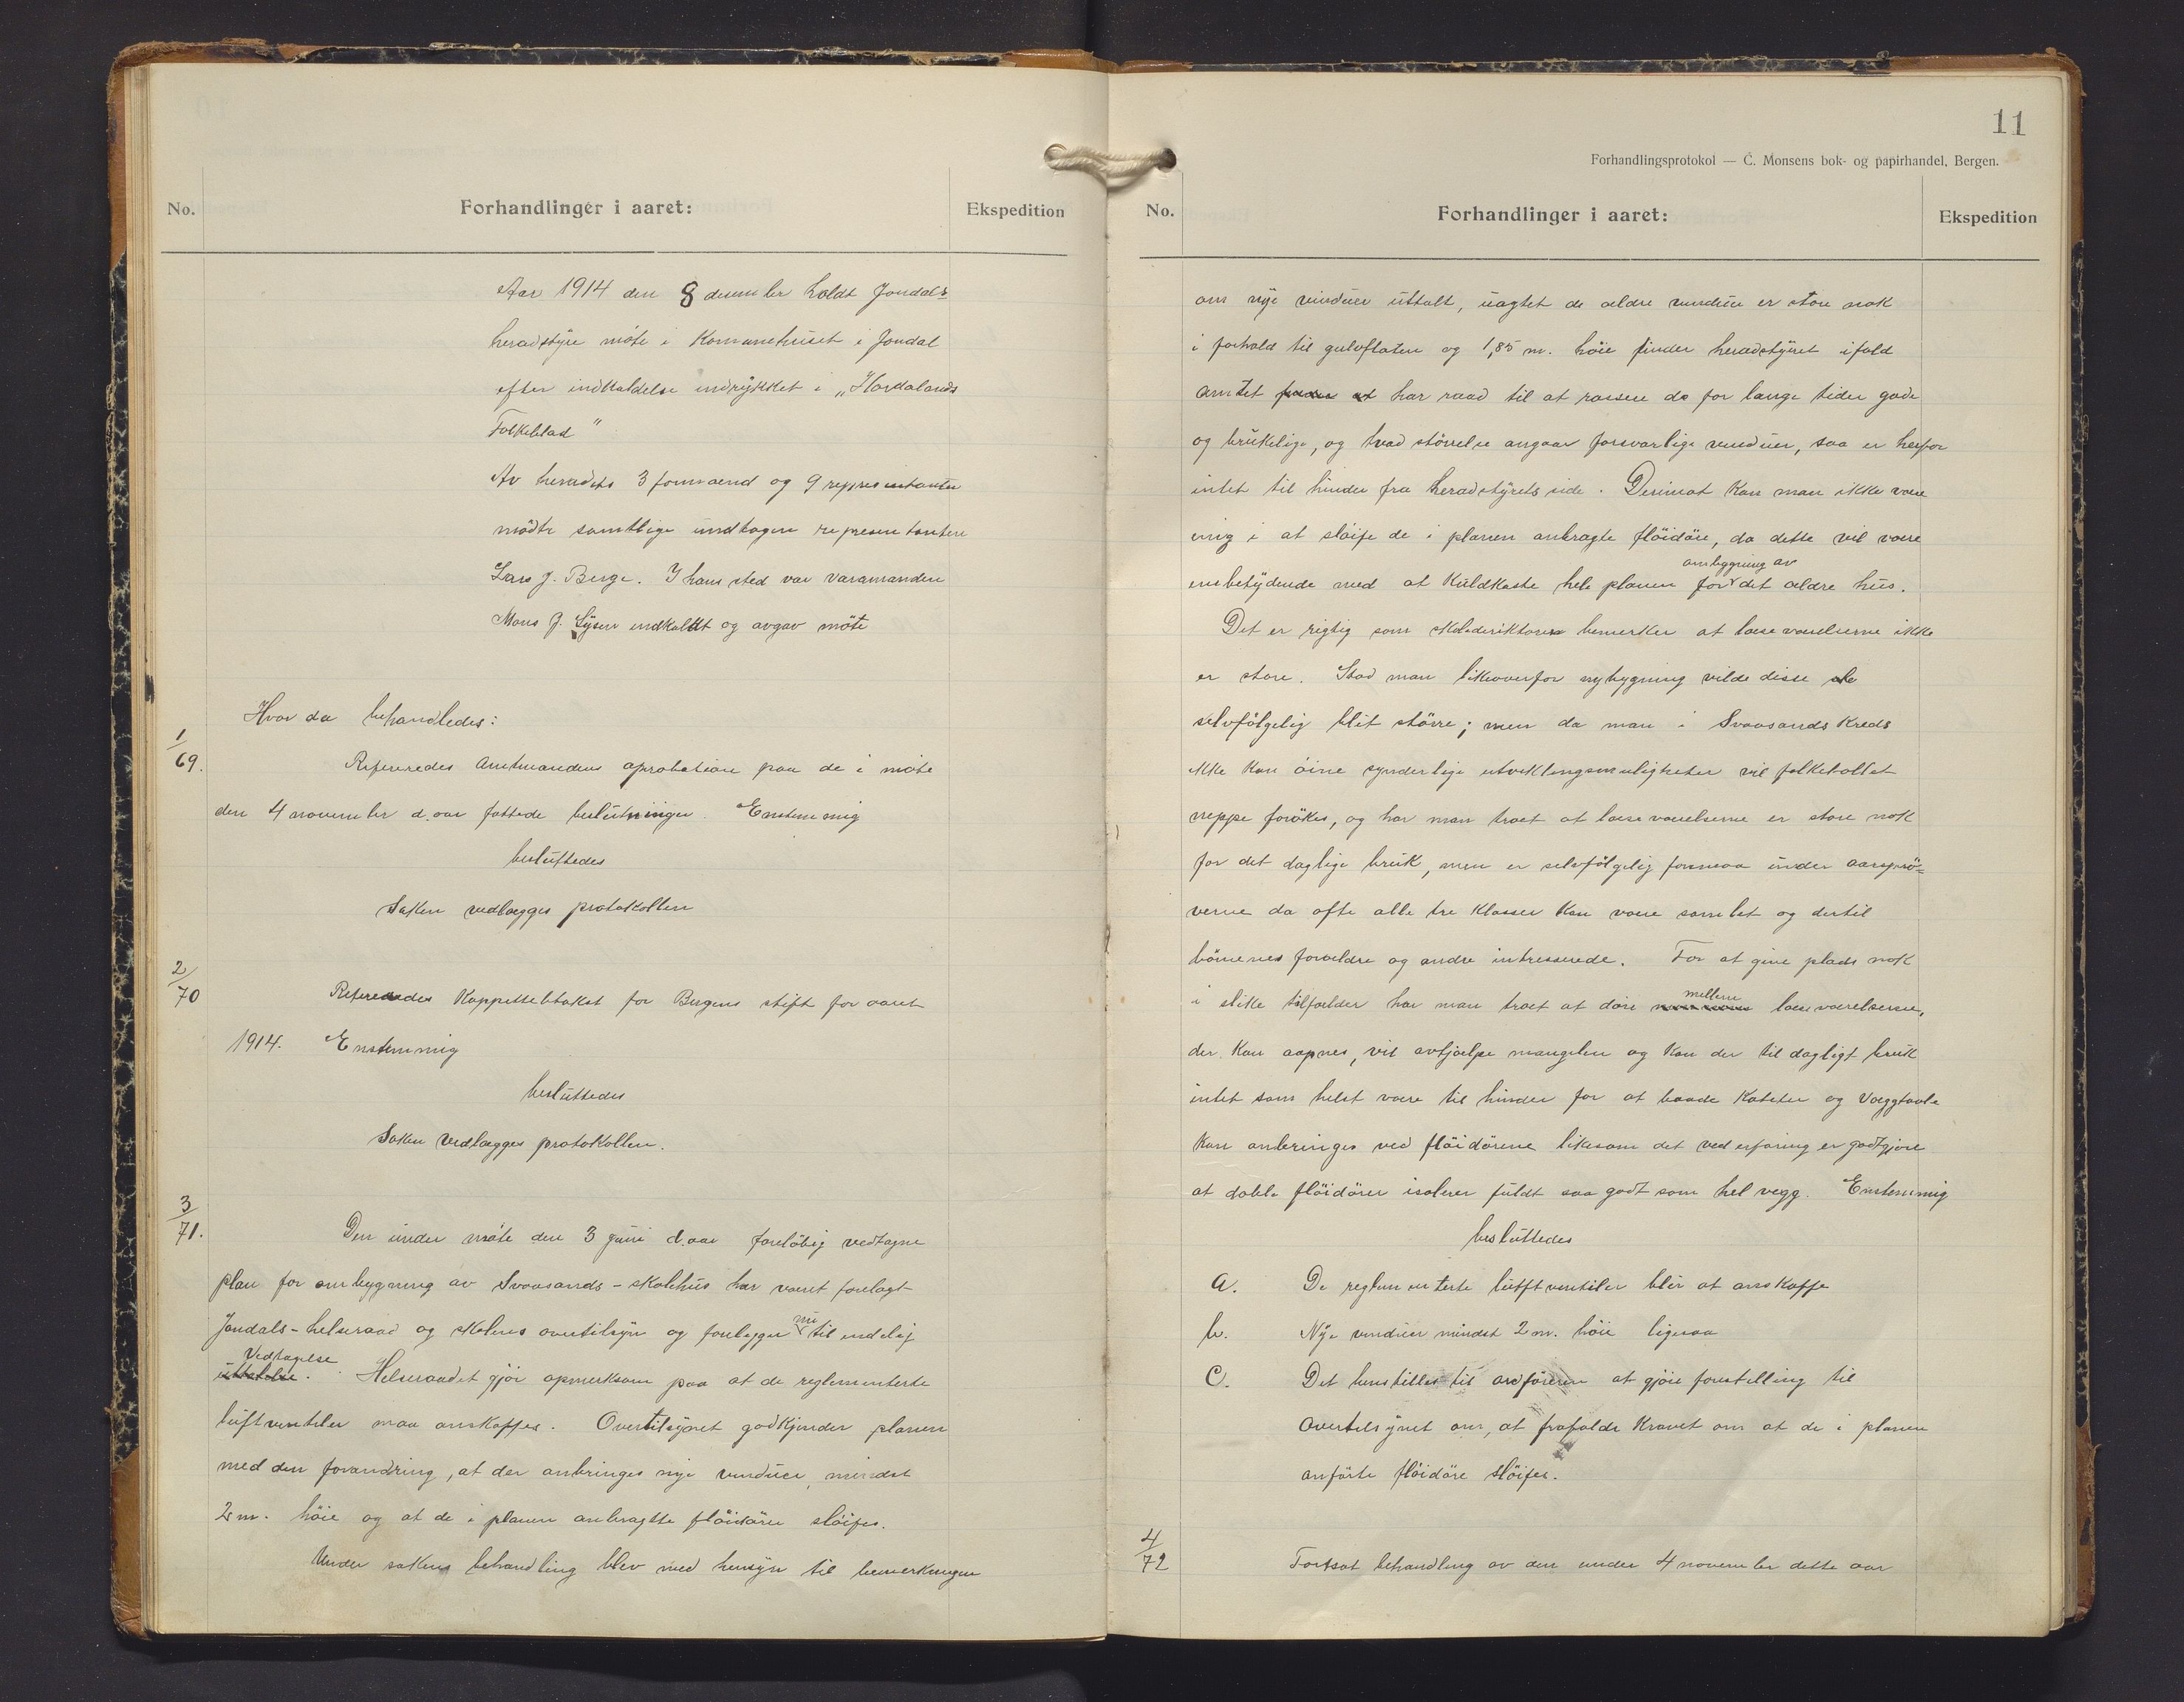 No.
Forhandlinger i aaret:
Ekspedition
Aar 1914 den 8 desember holdt Jondals
heradstyre möte i Kommunehuset i Jondal
efter indkaldelse indrykket i „Hordalands
Folkeblad"
Av heradets 3 formænd og 9 representanter
mødte samtlige undtagen representanten
Lars J. Berge. I hans sted var varamanden
Mons J. Lysen indkaldt og avgav möte
Hvor da behandledes:
1/69.
Refereredes Amtmandens aprobation paa de i möte
den 4 november d. aar fattede beslutninger. Enstemmig
besluttedes
Saken vedlægges protokollen
2/70
Refereredes Kappitelstakst for Bergens stift for aaret
1914. Enstemmig
besluttedes
Saken vedlægges protokollen.
3/71.
Den under möte den 3 juni d. aar foreløbig vedtagne
plan for ombygning av Svaasands-skolehus har været forelagt
Jondals-helseraad og skolens overtilsyn og foreligger nu til endelig
Vedtagelse
uttalelse. Helseraadet gjör opmerksom paa at de reglementerte
luftventiler maa anskaffes. Overtilsynet godkjender planen
med den forandring, at der anbringes nye vinduer, mindst
2 m. höie og at de i planen anbragte flöidöre slöifes.
Under sakens behandling blev med hensyn til bemerkningen
11
Forhandlingsprotokol — C. Monsens bok- og papirhandel, Bergen.
No.
Forhandlinger i aaret:
Ekspedition
om nye vinduer uttalt, uagtet de ældre vinduer er store nok
i forhold til gulvflaten og 1,85 m. höie finder heradstyret ifald
amtet har raad til at kassere de for lange tider gode
og brukelige, og hvad störrelse angaar forsvarlige vinduer, saa er herfor
intet til hinder fra heradstyrets side. Derimot kan man ikke være
enig i at slöife de i planen anbragte flöidöre, da dette vil være
ombygning av
ensbetydende med at kuldkaste hele planen for det ældre hus.
Det er rigtig som skoledirektoren bemerker at læseværelserne ikke
er store. Stod man likeoverfor nybygning vilde disse
selvfölgelig blit större; men da man i Svaasands Kreds
ikke kan öine synderlige utviklingsmuligheter vil folketallet
neppe forökes, og har man troet at læseværelserne er store nok
for det daglige bruk, men er selvfölgelig for smaa under aarsprö-
verne da ofte alle tre klasser kan være samlet og dertil
börnenes forældre og andre intresserede. For at give plads nok
mellem
i slike tilfælder har man troet at döre læseværelserne,
der kan aapnes, vil avhjælpe mangelen og kan der til dagligt bruk
intet som helst være til hinder for at baade Kateter og Væggtavle
kan anbringes ved flöidörene likesom det ved erfaring er godtgjort
at doble flöidörer isolerer fuldt saa godt som hel vegg. Enstemmig
besluttedes
a. De reglementerte luftventiler blir at anskaffe
b. Nye vinduer mindst 2 m. höie ligesaa
c. Det henstilles til ordföreren at gjöre forestilling til
overtilsynet om, at frafalde Kravet om at de i planen
anförte flöidöre slöifes.
4/72
Fortsat behandling av den under 4 november dette aar